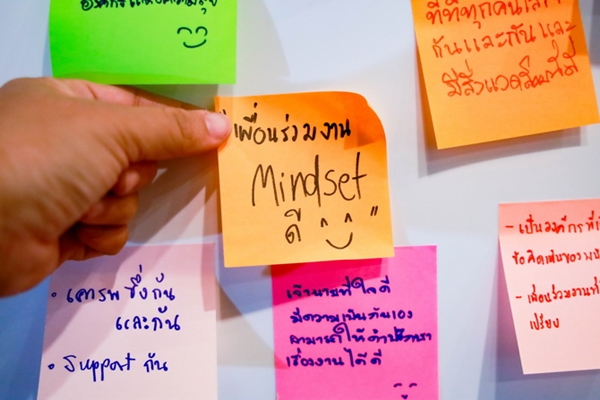 องค์กรแห่งความสุข
ที่ที่ทุกคนเคารพ
กันและกันและ
มีสิ่งแวดล้อมที่ดี
"เพื่อนร่วมงาน
Mindset
ดี ^_^"
• เคารพซึ่งกัน
และกัน
• Support กัน
เจ้านายที่ใจดี
มีความเป็นกันเอง
สามารถให้คำปรึกษา
เรื่องงานได้ดี
- เป็นองค์กรที่
- เพื่อนร่วมงานที่